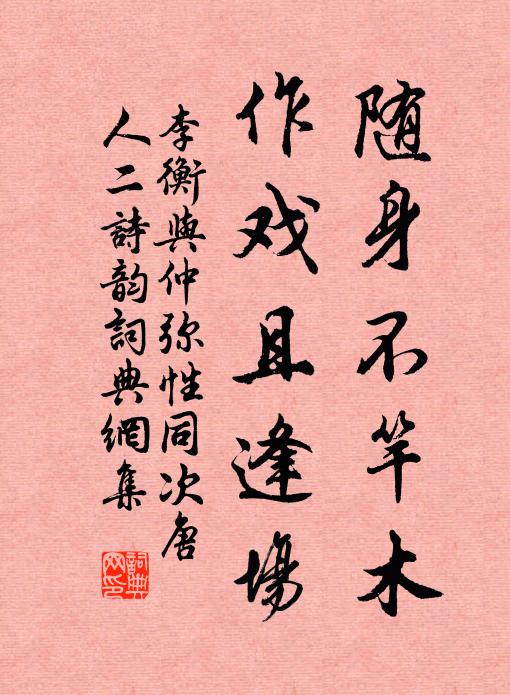 随身不竿木
作戏且逢場
李衡與仲弥性同次唐
人二詩韵詞典網集
詞典网印